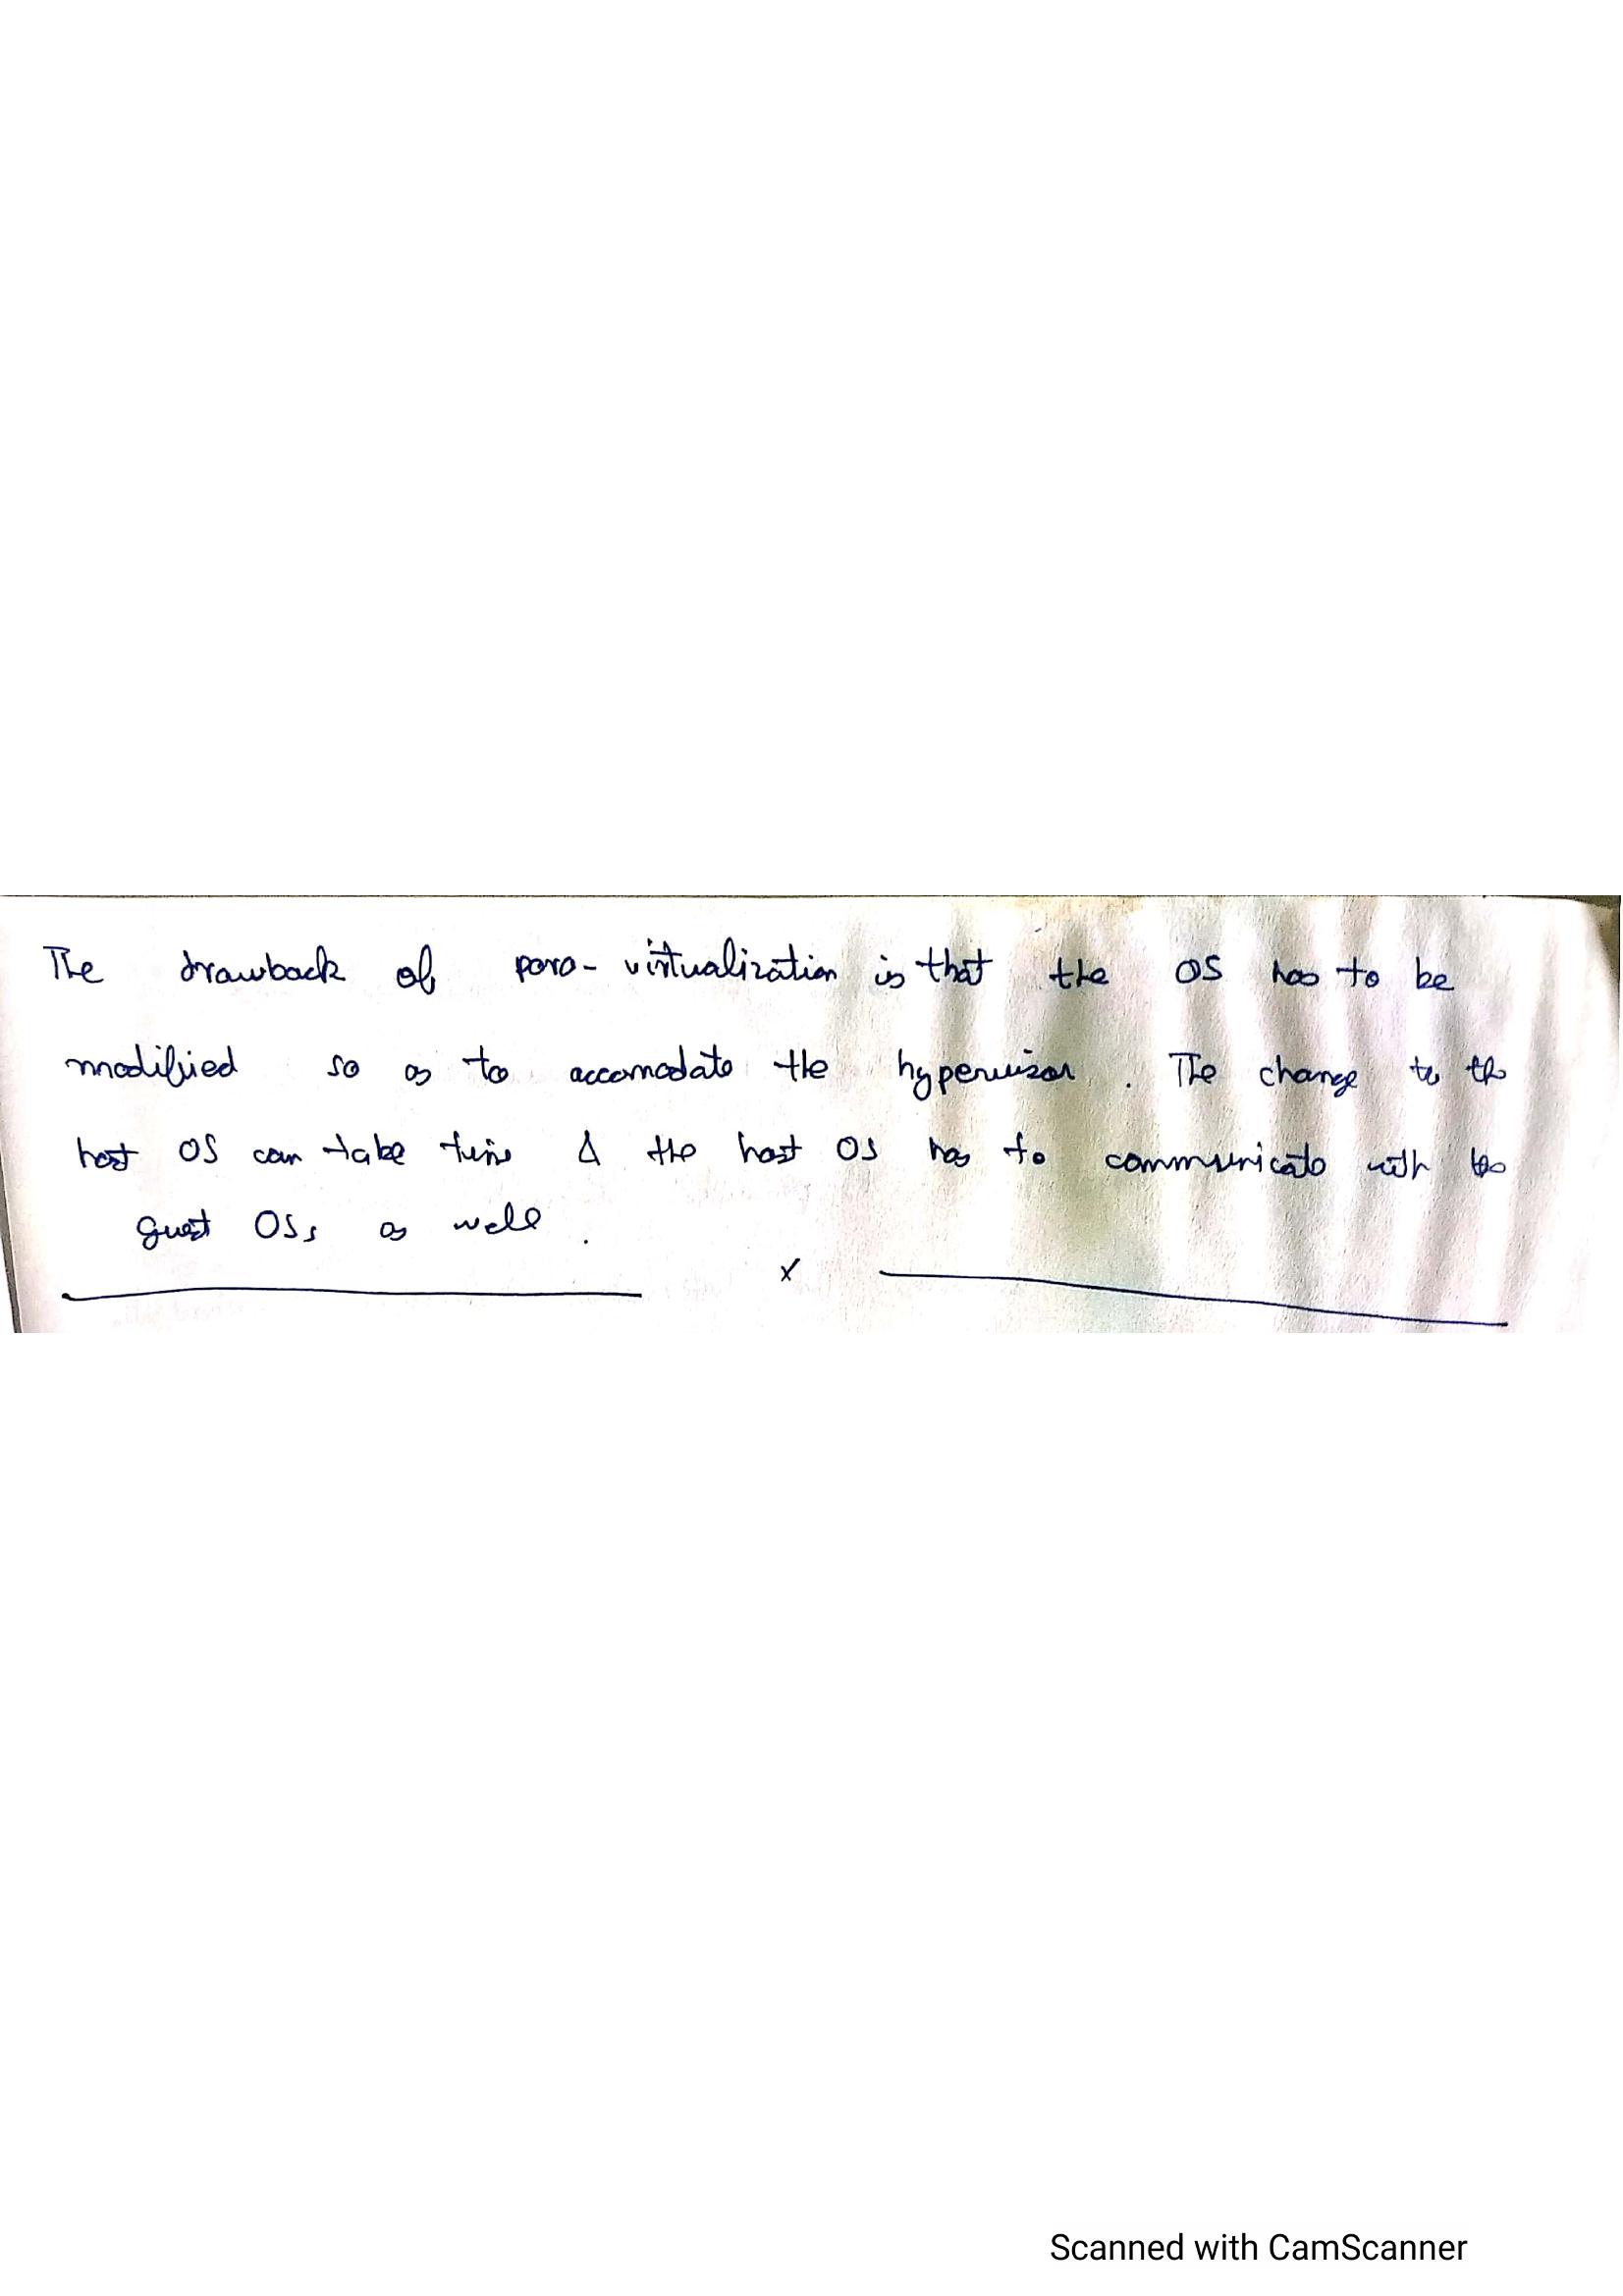 The drawback of para- virtualization is that the OS has to be
modified so as to accomodate the hypervisor . The change to the
host OS can take time & the host OS has to communicate with the
guest OSs as well .
x
Scanned with CamScanner